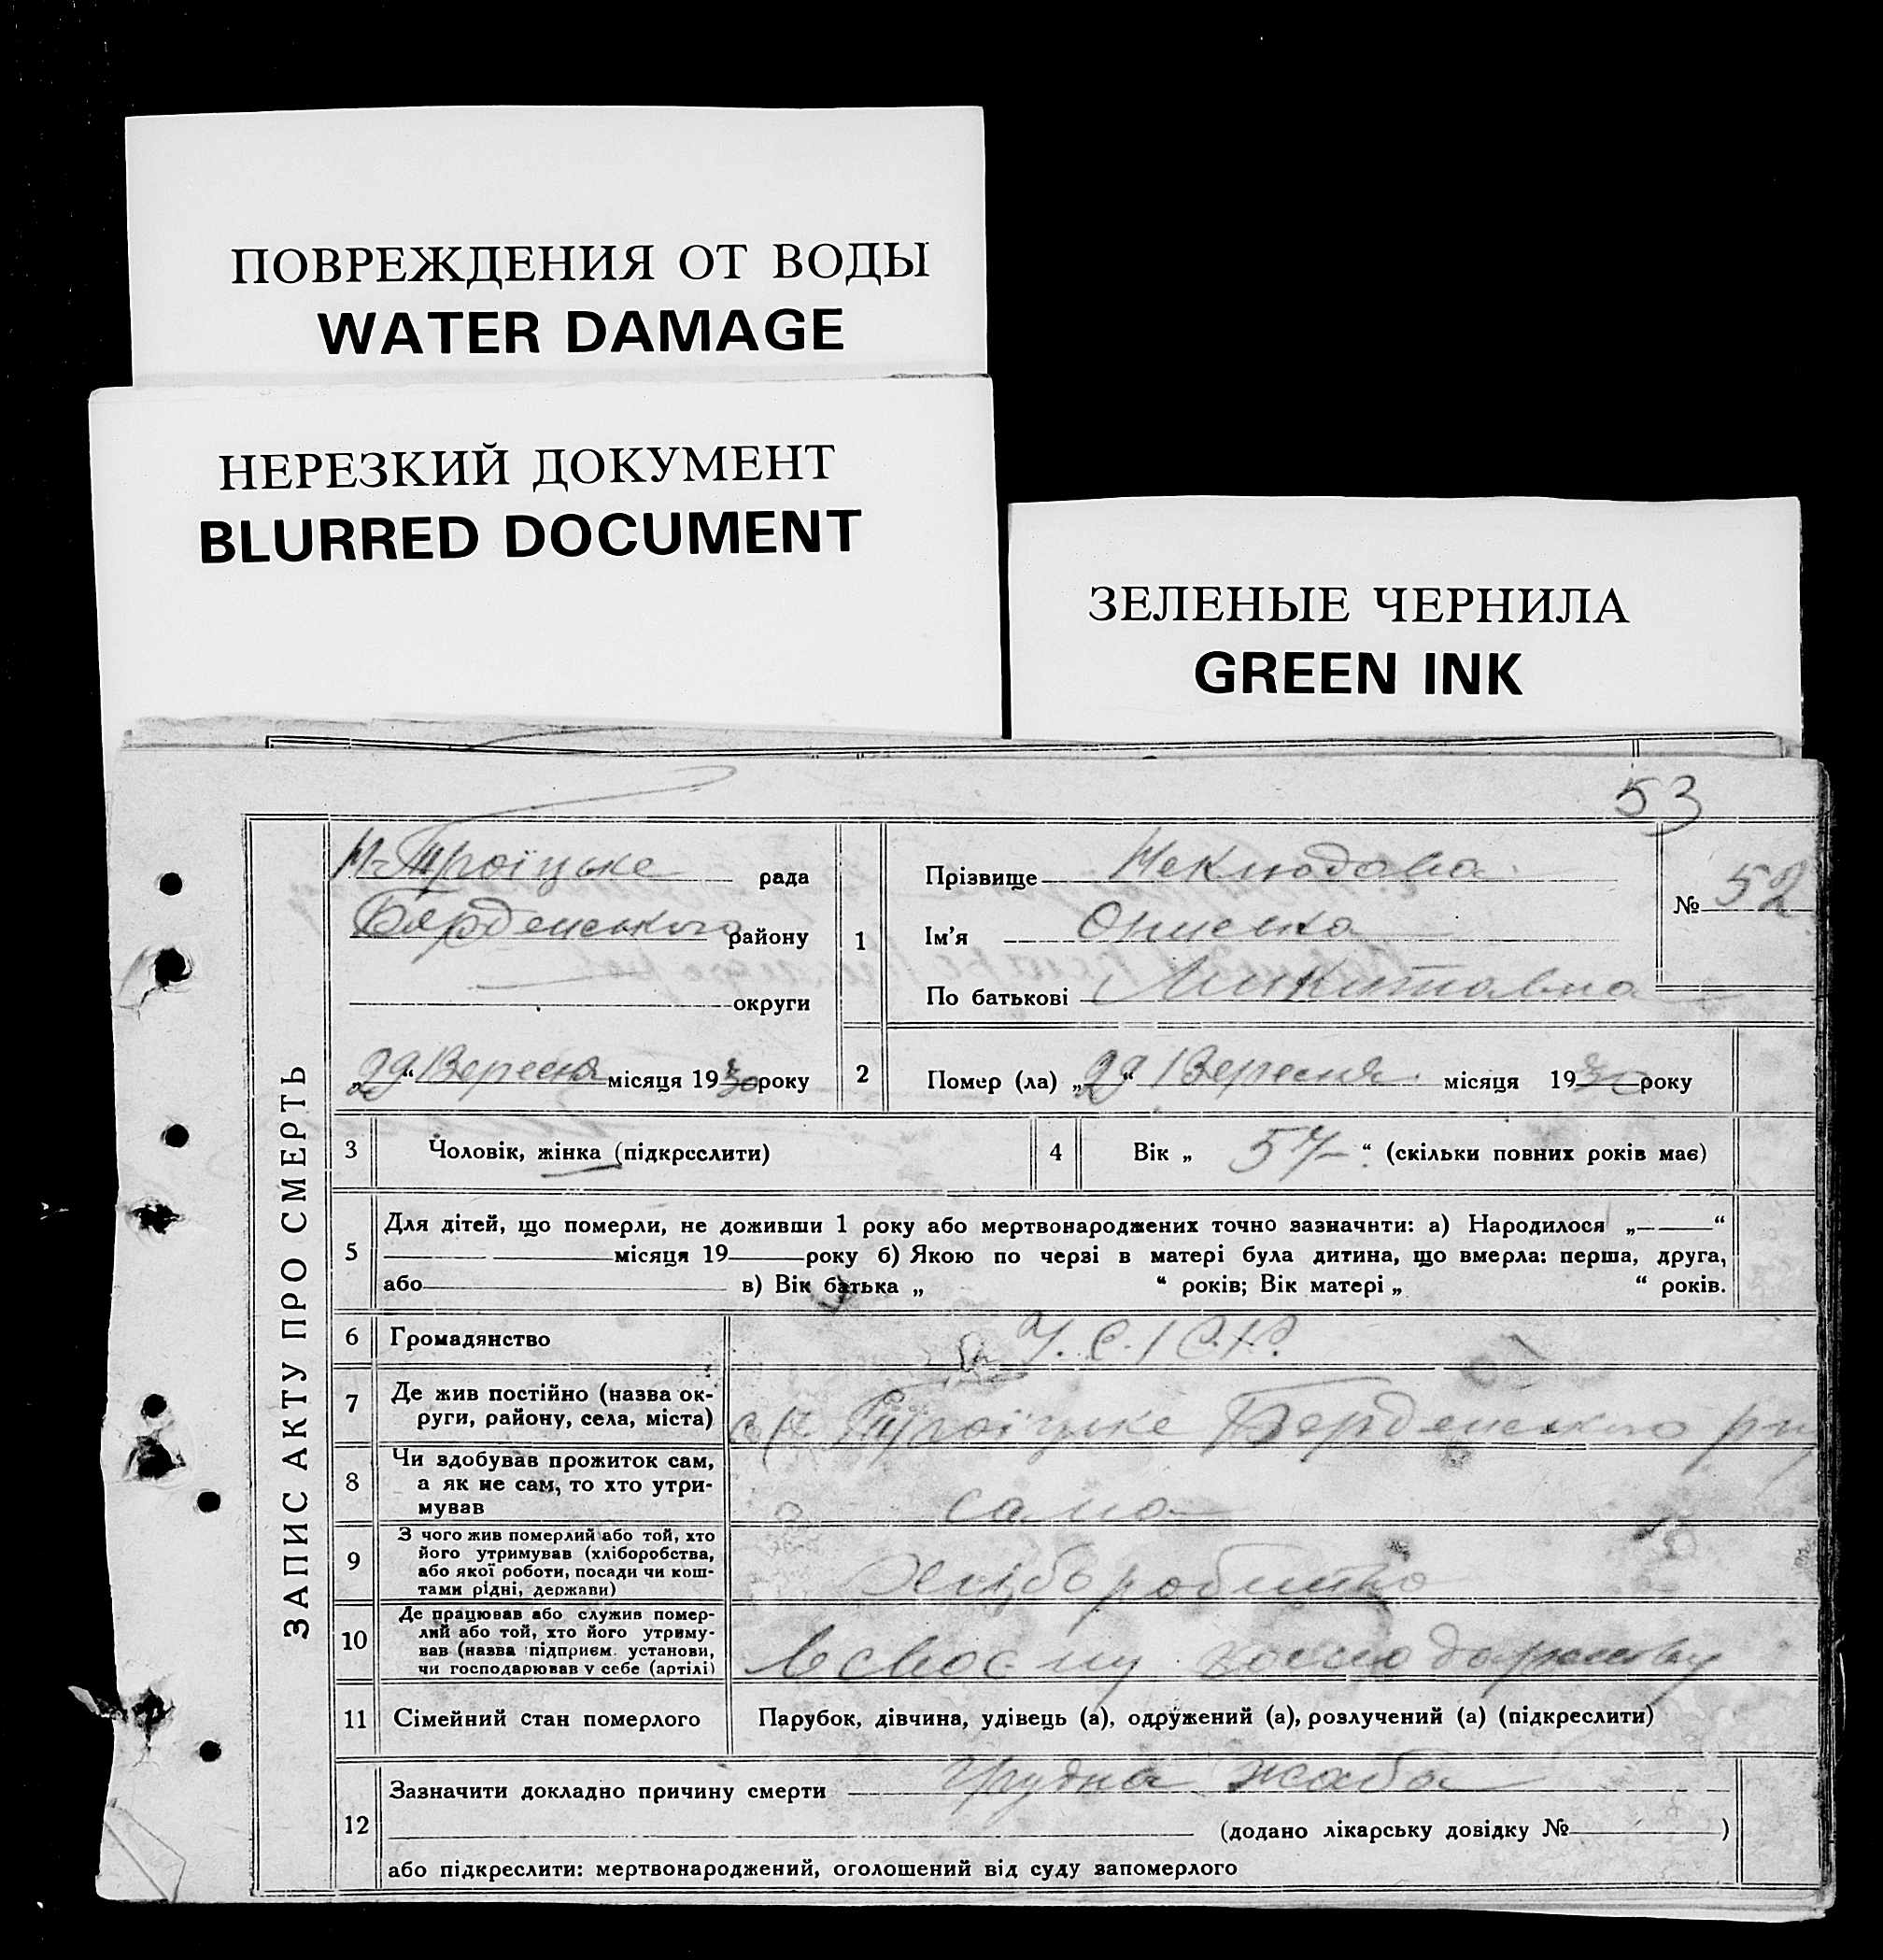 ПОВРЕЖДЕНИЯ ОТ ВОДЫ
WATER DAMAGE
НЕРЕЗКИЙ ДОКУМЕНТ
BLURRED DOCUMENT
ЗЕЛЕНЫЕ ЧЕРНИЛА
GREEN INK
53
ЗАПИС АКТУ ПРО СМЕРТЬ
Н-Троїцьке рада
Бердянського району
округи
„29“ Вересня місяця 1930 року
1
Прізвище Неклюдова
Ім'я
По батькові Микитовна
№ 52
2 Помер (ла) „29“ Вересня місяця 1930 року
3 Чоловік, жінка (підкреслити)
4 Вік „57“ (скільки повних років має)
5 Для дітей, що померли, не доживши 1 року або мертвонароджених точно зазначити: а) Народилося „ “
місяця 19 року б) Якою по черзі в матері була дитина, що вмерла: перша, друга,
або в) Вік батька „ “ років; Вік матері „ “ років.
6 Громадянство У.С.С.Р.
7 Де жив постійно (назва ок-
руги, району, села, міста)
Троїцьке Бердянського
8 Чи здобував прожиток сам,
а як не сам, то хто утри-
мував
сама
9 З чого жив померлий або той, хто
його утримував (хліборобства,
або якої роботи, посади чи кош-
тами рідні, держави)
10 Де працював або служив помер-
лий або той, хто його утриму-
вав (назва підприєм. установи,
чи господарював у себе (артілі)
в своєму господарству
11 Сімейний стан померлого Парубок, дівчина, удівець (а), одружений (а), розлучений (а) (підкреслити)
12 Зазначити докладно причину смерти грудна жаба
(додано лікарську довідку № )
або підкреслити: мертвонароджений, оголошений від суду запомерлого